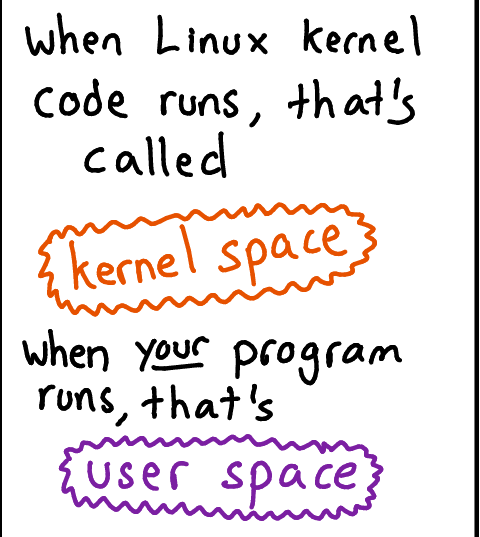 when Linux kernel
code runs, that's
called
kernel space
when your program
runs, that's
user space